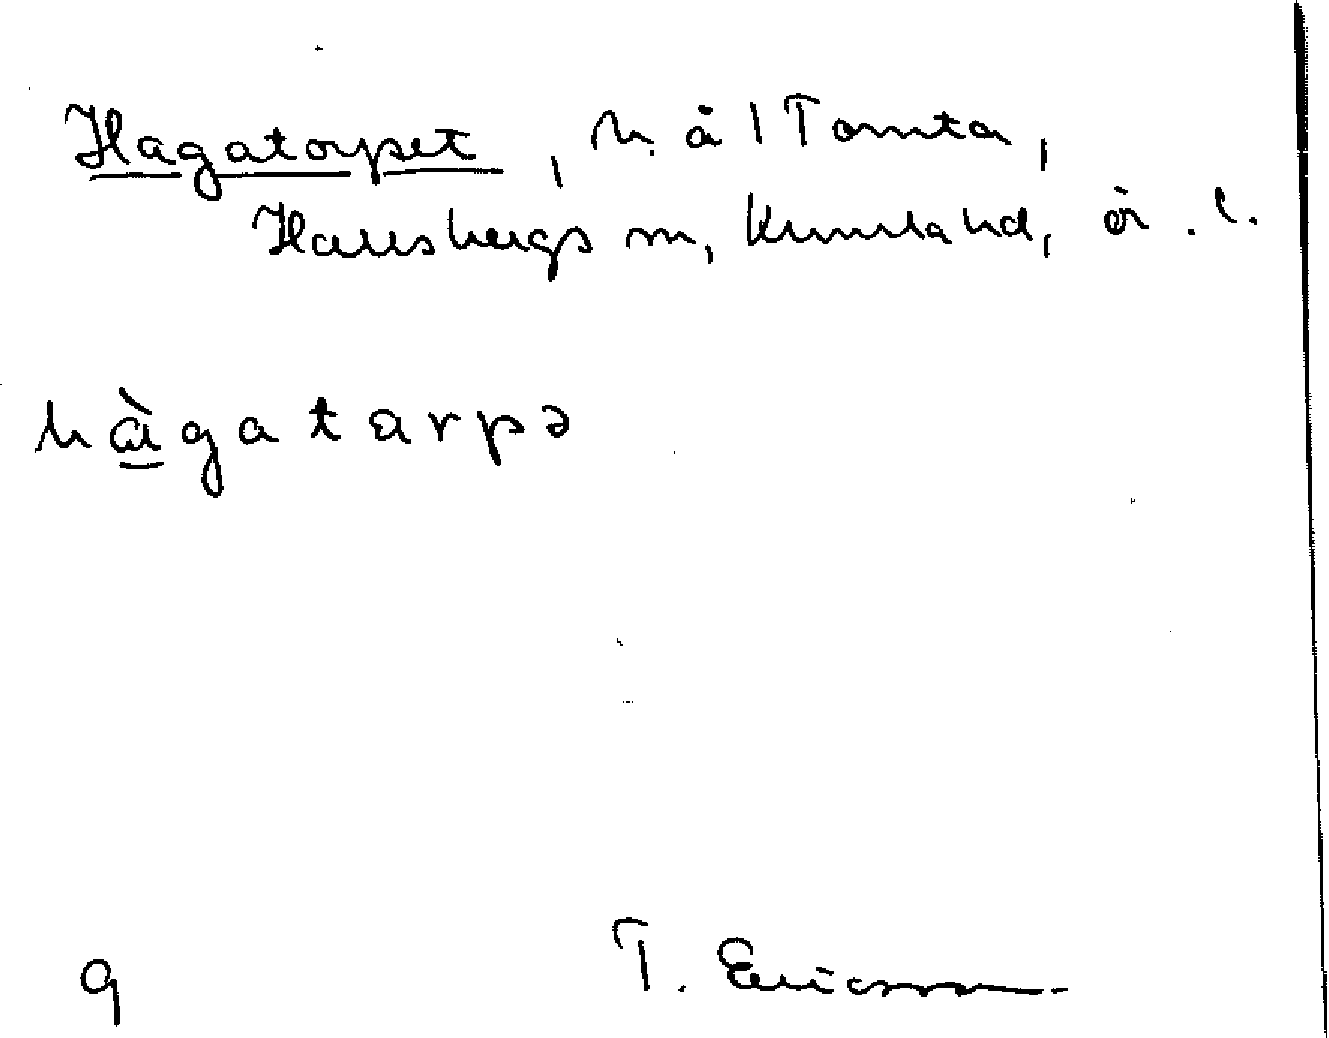 Hagatorpet, h. å 1 Tomta,
Hallsbergs sn, Kumla hd, ör. l.
hàgatarpə
9 T. Ericsson